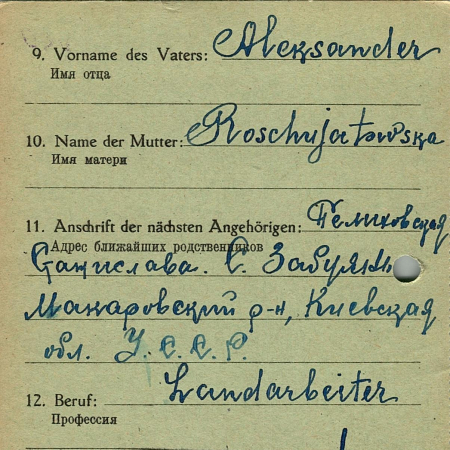 9. Vorname des Vaters: Aleksander
Имя отца
10. Name der Mutter: Roschnjatowska
Имя матери
11. Anschrift der nächsten Angehörigen: Пелиховская
Адрес ближайших родственников
Станислава. С. Забуянь
Макаровский р-н, Киевская
обл. У.С.С.Р.
12. Beruf: Landarbeiter
Профессия